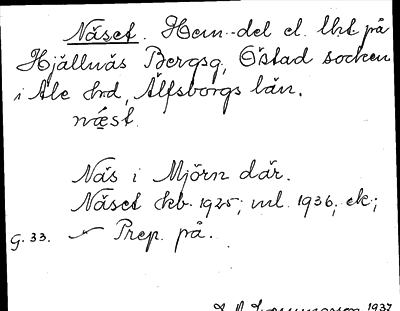 Näset. Hem.-del el. lht på
Hjällnäs Bergsg, Östad socken
i Ale hrd, Älfsborgs län.
næst.
Näs i Mjörn där.
Näset kb. 1925; ml. 1936, ek;
G. 33. Prep. på.
1937